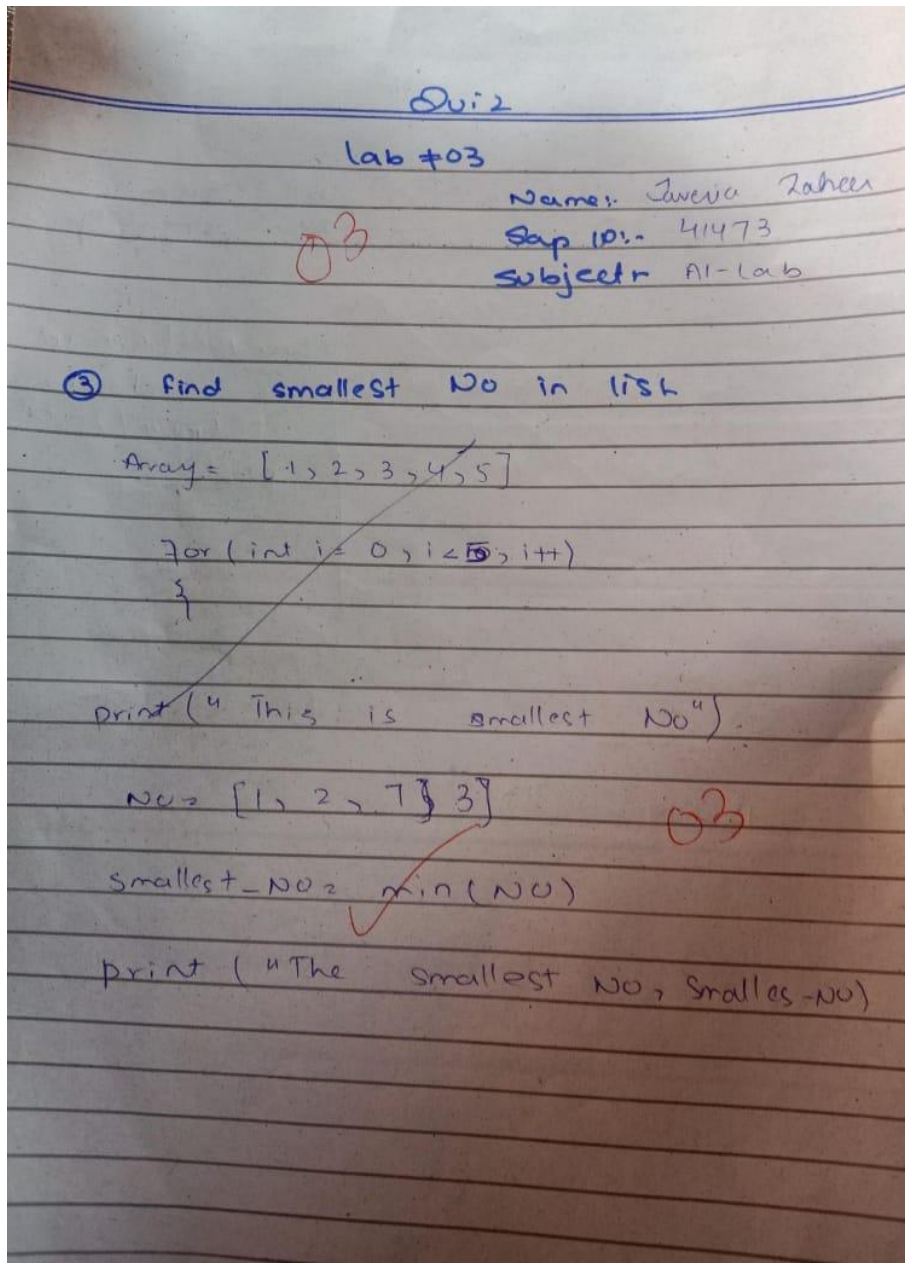 Quiz
lab #03
Name:- Javeria Zaheer
03
Sap ID:- 41473
Subject:- AI-Lab
③ find smallest No in list
Array = [1, 2, 3, 4, 5]
for (int i = 0, i < 5, i++)
{
print (" This is smallest No").
No = [1, 2, 7, 3]
03
smallest_NO = min(NO)
print ("The smallest NO, Smalles-NO)